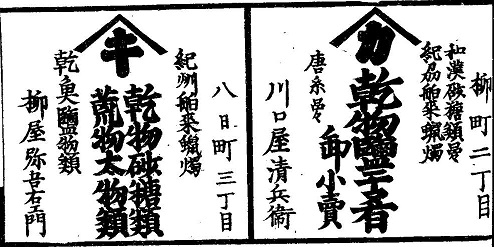 柳町二丁目
和漢砂糖類品々
紀州舶来蝋燭
カ
乾物塩干肴
卸小賣
唐糸品々
川口屋清兵衛
八日町三丁目
紀州舶来蝋燭
キ
乾物砂糖類
荒物太物類
乾魚鹽物類
柳屋弥吾右エ門